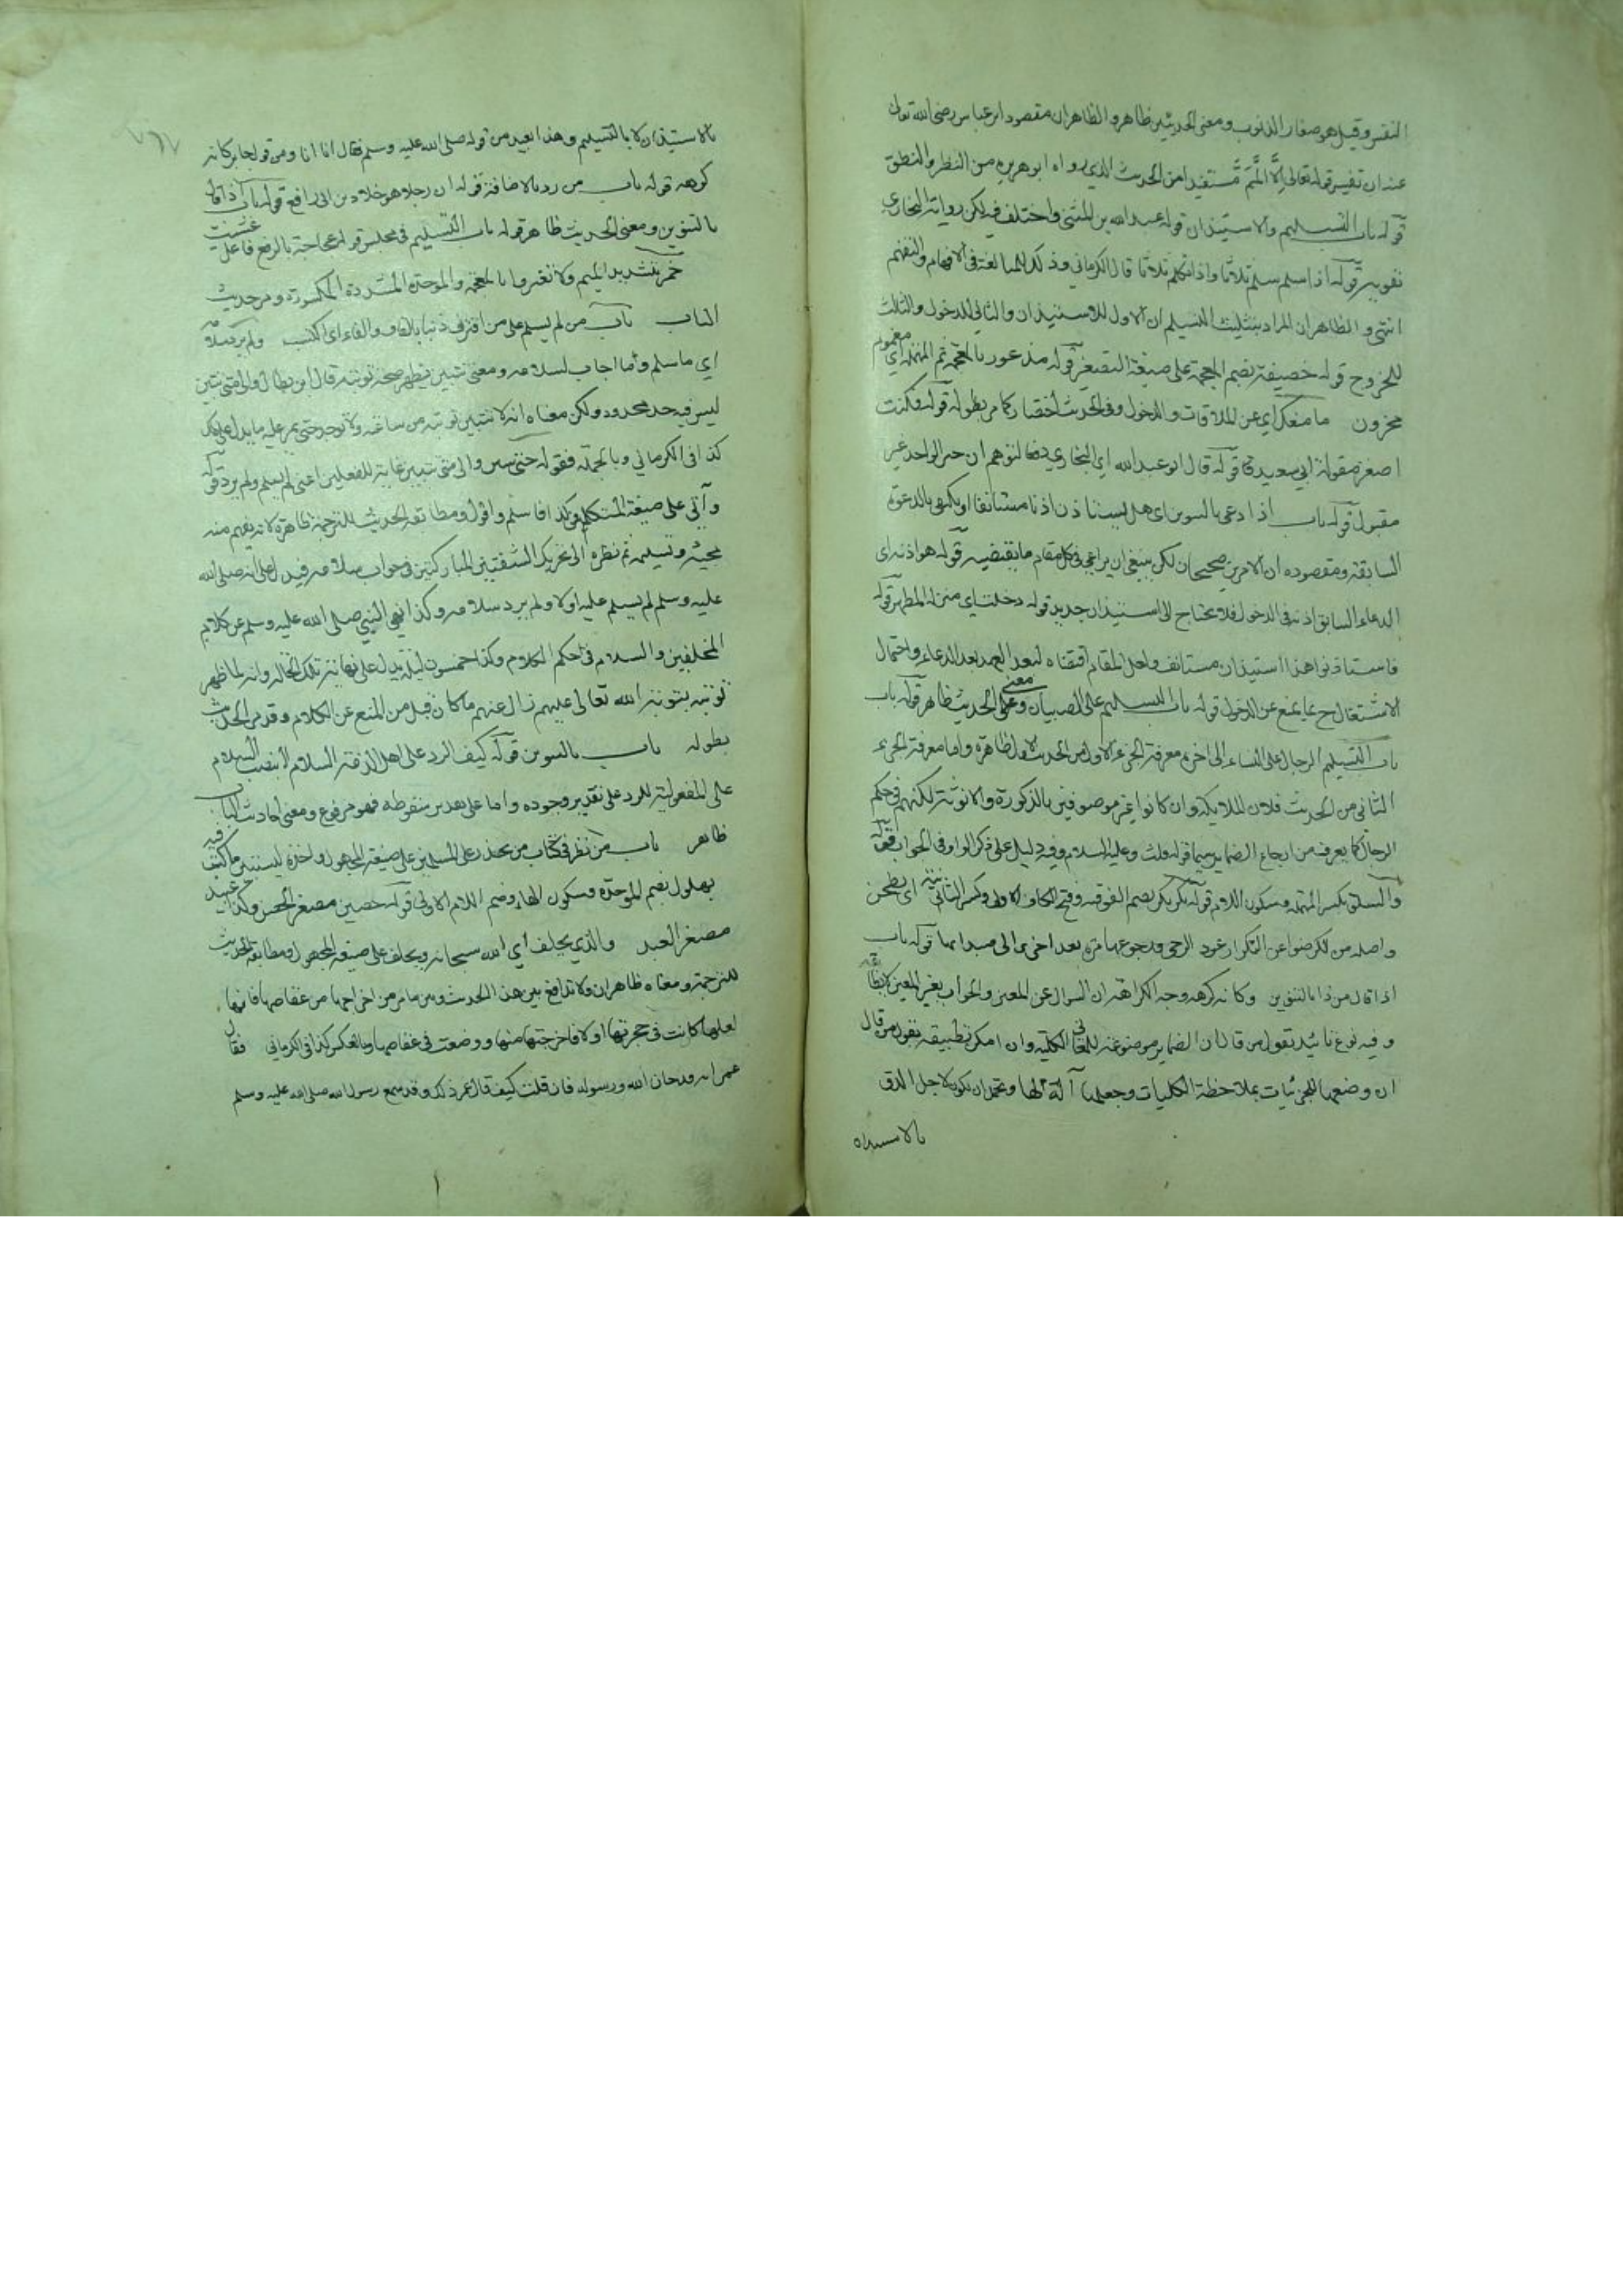 النفس وقيل هو صغار الذنوب ومعنى الحديثين ظاهر والظاهر ان مقصود ابن عباس رضي الله تعالى
عنه ان تفسير قوله تعالى إِلَّا اللَّمَمَ مستفيد من الحديث الذي رواه ابو هريرة من النظر والنطق
قوله باب التسليم والاستيذان قوله عبد الله بن المثنى واختلف فيه لكن رواية البخاري
تقويه قوله اذا سلم سلم ثلاثا واذا تكلم ثلاثا قال الكرماني وذلك للمبالغة في الافهام والتفهم
انتهى والظاهر ان المراد بتثليث التسليم ان الاول للاستيذان والثاني للدخول والثالث
للخروج قوله خصيفة بضم المعجمة على صيغة التصغير قوله مذعور بالمعجمة ثم المهملة اي مغموم
محزون ما منعك اي عن الملاقات والدخول وفي الحديث اختصار كما مر بطوله قوله فكنت
اصغر مقولة ابي سعيد قوله قال ابو عبد الله اي البخاري دفعا لتوهم ان خبر الواحد غير
مقبول قوله باب اذا دعي بالتنوين اي هل يستاذن اذنا مستانفا او يكتفي بالدعوة
السابقة ومقصوده ان الامرين صحيحان لكن ينبغي ان يراعي في كل مقام ما يقتضيه قوله هو اذنه اي
الدعاء السابق اذنه في الدخول فلا يحتاج الى استيذان جديد قوله دخلت اي منزله المطهر قوله
فاستاذنوا هذا استيذان مستانف ولعل المقام اقتضاه لبعد العهد بعد الدعاء واحتمال
الاشتغال ح بما يمنع عن الدخول قوله باب التسليم على الصبيان ومعنى الحديث ظاهر قوله باب
باب التسليم الرجال على النساء الى اخره معرفة الجزء الاول من الحديث الاول ظاهرة واما معرفة الجزء
الثاني من الحديث فلان الملايكة وان كانوا غير موصوفين بالذكورة والانوثة لكنهم في حكم
الرجال كما يعرف من ارجاع الضماير سيما قوله قلت وعليه السلام وفيه دليل على ذكر الواو في الجواب قوله
والسلق بكسر المهملة وسكون اللام قوله تكركر بضم الفوقية وفتح الكاف الاولى وكسر الثانية اي تطحن
واصله من الكر ضوعف لتكرار عود الرحى ورجوعها مرة بعد اخرى الى مبداها قوله باب
اذا قال من ذا بالتنوين وكانه كرهه وجه الكراهة ان السوال عن المعين والجواب بغير المعين
وفيه نوع تائيد لقول من قال ان الضماير موضوعة للمعاني الكلية وان امكن تطبيقه بقول من قال
ان وضعها للجزئيات بملاحظة الكليات وجعلها آلة لها ويحتمل ان يكون لاجل الدق
بالاستيذان
بالاستيذان لا بالتسليم وهذا ابعيد من قوله صلى الله عليه وسلم فقال انا انا ومن قول جابر كانه
كرهه قوله باب من رد بالاضافة قوله ان رجلا هو خلاد بن ابي رافع قوله باب اذا قال
بالتنوين ومعنى الحديث ظاهر قوله باب التسليم في مجلس قوله عجاجة بالرفع فاعل غشيت
خمر بتشديد الميم ولا تغبروا بالمعجمة والموحدة المشددة المكسورة ومر حديث
الباب باب من لم يسلم على من اقترف ذنبا بالقاف والفاء اي اكتسب ولم يرد سلامه
اي ما سلم وما اجاب لسلامه ومعنى تتبين يظهر صحة توبته قال ابن بطال والى متى تتبين
ليس فيه حد محدود ولكن معناه انه لا تتبين توبته من ساعته ولا يوجد حتى يمر عليه ما يدل على ذلك
كذا في الكرماني وبالجملة فقوله حتى تتبين والى متى تتبين غاية للفعلين اعني لم يسلم ولم يرد قوله
وآتي على صيغة المتكلم وكذا فاسلم واقول ومطابقة الحديث للترجمة ظاهرة لانه يفهم منه
مجيئه وتسليمه ثم نظره الى تحريك الشفتين المباركتين في جواب سلامه فيدل على انه صلى الله
عليه وسلم لم يسلم عليه اولا ولم يرد سلامه وكذا نهي النبي صلى الله عليه وسلم عن كلام
المخلفين والسلام في حكم الكلام وكذا خمسون ليلة يدل على نهاية تلك الحالة وانه لما ظهر
توبته بتوبة الله تعالى عليهم زال عنهم ما كان قبل من المنع عن الكلام وقد مر الحديث
بطوله باب بالتنوين قوله كيف الرد على اهل الذمة السلام بنصب السلام
على المفعولية للرد على تقدير وجوده واما على تقدير سقوطه فهو مرفوع ومعنى احاديث الباب
ظاهر باب من نظر في كتاب من يحذر على المسلمين على صيغة المجهول واخره ليستبين ما كتب فيه
بهلول بضم الموحدة وسكون الهاء وضم اللام الاولى قوله حصين مصغر الحصن وكذا عبيد
مصغر العبد والذي يحلف اي الله سبحانه ويحلف على صيغة المجهول ومطابقة الحديث
للترجمة ومعناه ظاهران ولا تدافع بين هذا الحديث وبين ما مر من اخراجها من عقاصها فانها
لعلها كانت في حجزتها اولا فاخرجتها منها ووضعت في عقاصها وبالعكس كذا في الكرماني فقال
عمر انه قد خان الله ورسوله فان قلت كيف قال عمر ذلك وقد سمع رسول الله صلى الله عليه وسلم